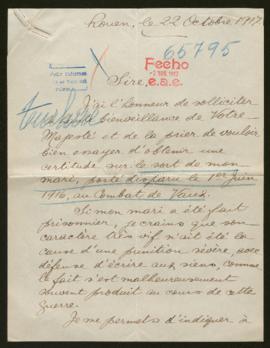 Rouen, le 22 Octobre 1917.
65795
Fecho
e.a.e.
Sire,
J'ai l'honneur de solliciter
la bienveillance de Votre
Majesté et de la prier de vouloir
bien essayer d'obtenir une
certitude sur le sort de mon
mari, porté disparu le 1er Juin
1916, au Combat de Vaux.
Si mon mari a été fait
prisonnier, je crains que son
caractère très vif ait été la
cause d'une punition sévère, avec
défense d'écrire aux siens, comme
ce fait s'est malheureusement
souvent produit au cours de cette
guerre.
Je me permets d'indiquer à